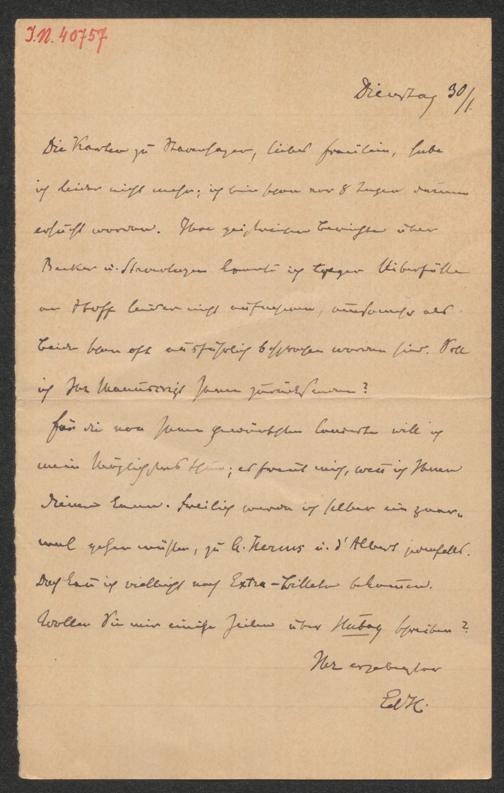 I.N. 40757
Dienstag 30/1.
Die Karten zu Stavenhagen, liebes Fräulein, habe
ich leider nicht mehr; ich bin schon vor 8 Tagen darum
ersucht worden. Ihre geistreichen Berichte über
Becker u. Stavenhagen konnte ich wegen Ueberfülle
an Stoff leider nicht aufnehmen, umsomehr als
beide schon oft ausführlich besprochen worden sind. Soll
ich Ihr Manuscript Ihnen zurücksenden?
Für die von Ihnen gewünschten Concerte will ich
mein Möglichstes thun; es freut mich, wenn ich Ihnen
dienen kann. Freilich werde ich selber ein paar-
mal gehen müssen, zu u. d'Albert jedenfalls.
Doch kann ich vielleicht noch Extra-Billete bekommen.
Wollen Sie mir einige Zeilen über Hubay schreiben?
Ihr ergebenster
Ed H.